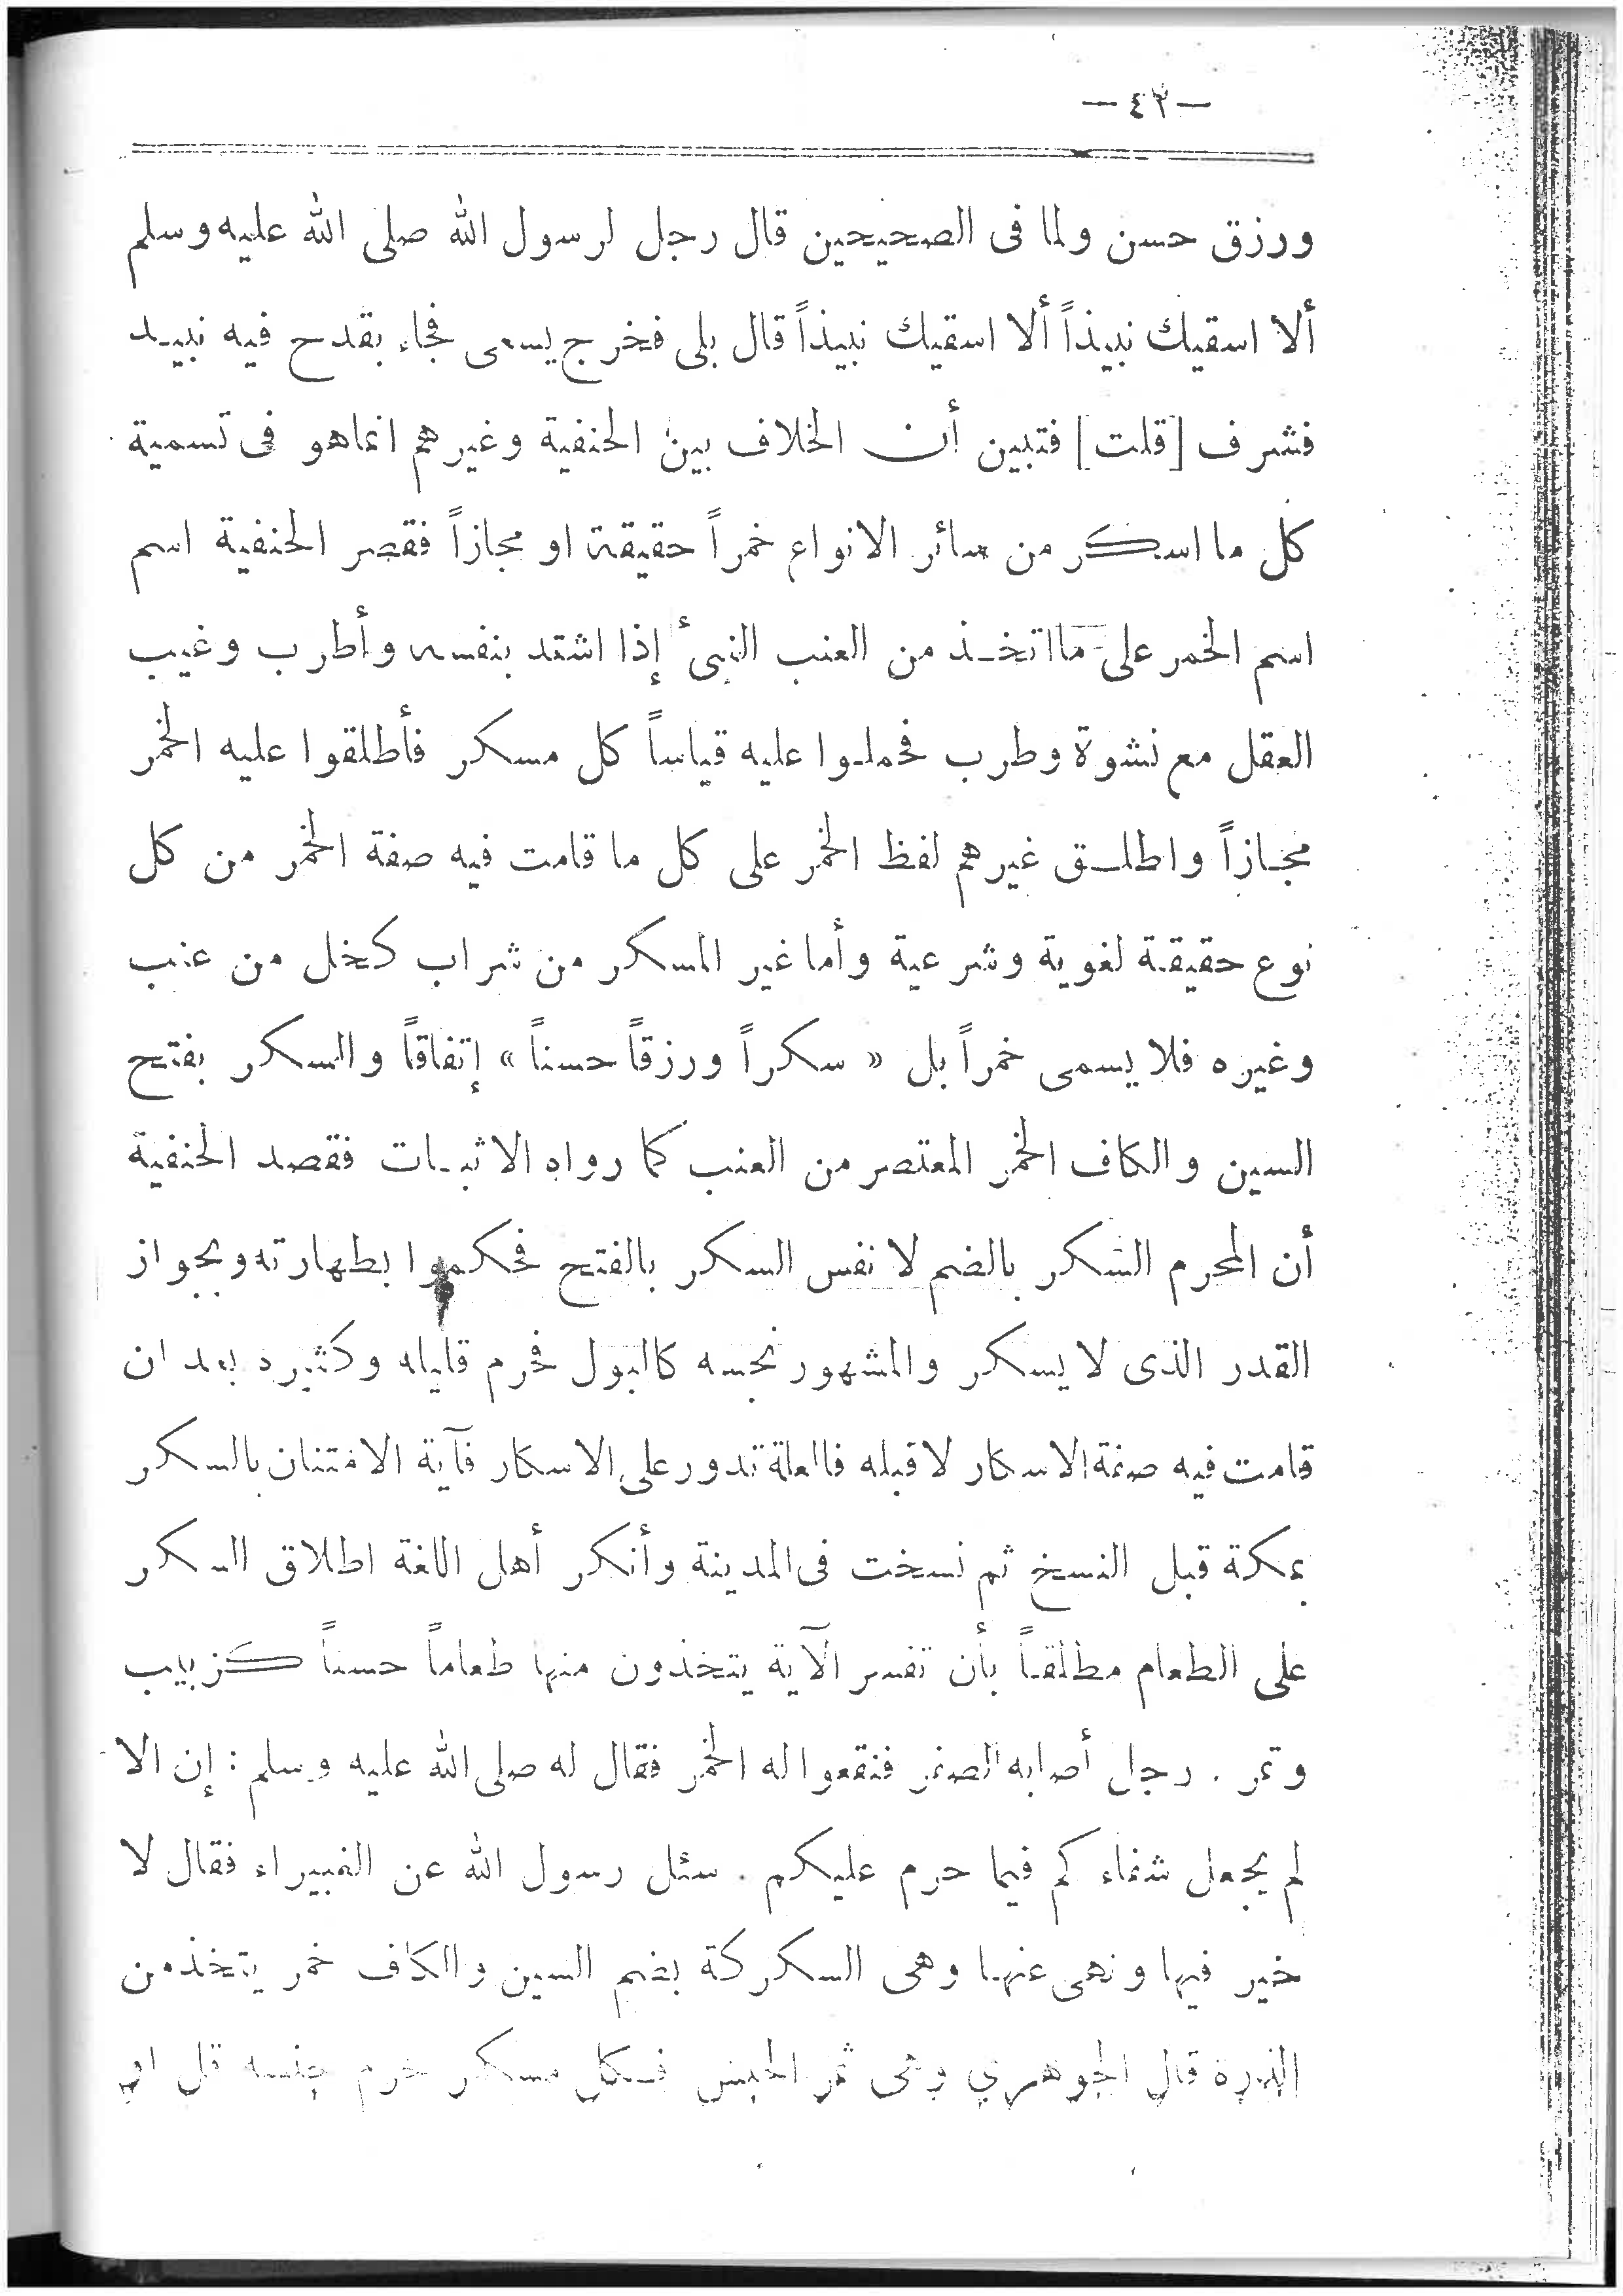 —٤٣—
ورزق حسن ولما فى الصحيحين قال رجل لرسول الله صلى الله عليه وسلم
ألا اسقيك نبيذاً ألا اسقيك نبيذاً قال بلى فخرج يسعى فجاء بقدح فيه نبيـد
فشرف [قلت] فتبين أن الخلاف بين الحنفية وغيرهم انماهو فى تسمية
كل ما اسكر من سائر الانواع خمراً حقيقة او مجازاً فقصر الحنفية اسم
اسم الخمر على ما اتخـذ من العنب النىء إذا اشتد بنفسه وأطرب وغيب
العقل مع نشوة وطرب فحملوا عليه قياساً كل مسكر فأطلقوا عليه الخمر
مجـازاً واطلـق غيرهم لفظ الخمر على كل ما قامت فيه صفة الخمر من كل
نوع حقيقة لغوية وشرعية وأما غير المسكر من شراب كخل من عنب
وغيره فلا يسمى خمراً بل « سكراً ورزقاً حسناً » إتفاقاً والسكر بفتح
السين والكاف الخمر المعتصر من العنب كما رواه الاثبـات فقصد الحنفية
أن المحرم السكر بالضم لا نفس السكر بالفتح فحكموا بطهارته وبجواز
القدر الذى لا يسكر والمشهور نجسه كالبول فحرم قليله وكثيره بعد ان
قامت فيه صفة الاسكار لا قبله فالعلة تدور على الاسكار فآية الامتنان بالسكر
بمكة قبل النسخ ثم نسخت فى المدينة وأنكر أهل اللغة اطلاق السكر
على الطعام مطلقـاً بأن تفسر الآية يتخذون منها طعاماً حسناً كزبيب
وتمر . رجل أصابه الصفر فنقعوا له الخمر فقال له صلى الله عليه وسلم : إن الا
لم يجعل شفاء كم فيما حرم عليكم . سئل رسول الله عن الغبيراء فقال لا
خير فيها ونهى عنها وهى السكركة بضم السين والكاف خمر يتخذ من
الذرة قال الجوهري وهى خمر الحبش فـكل مسكر حرم جنسه قل او